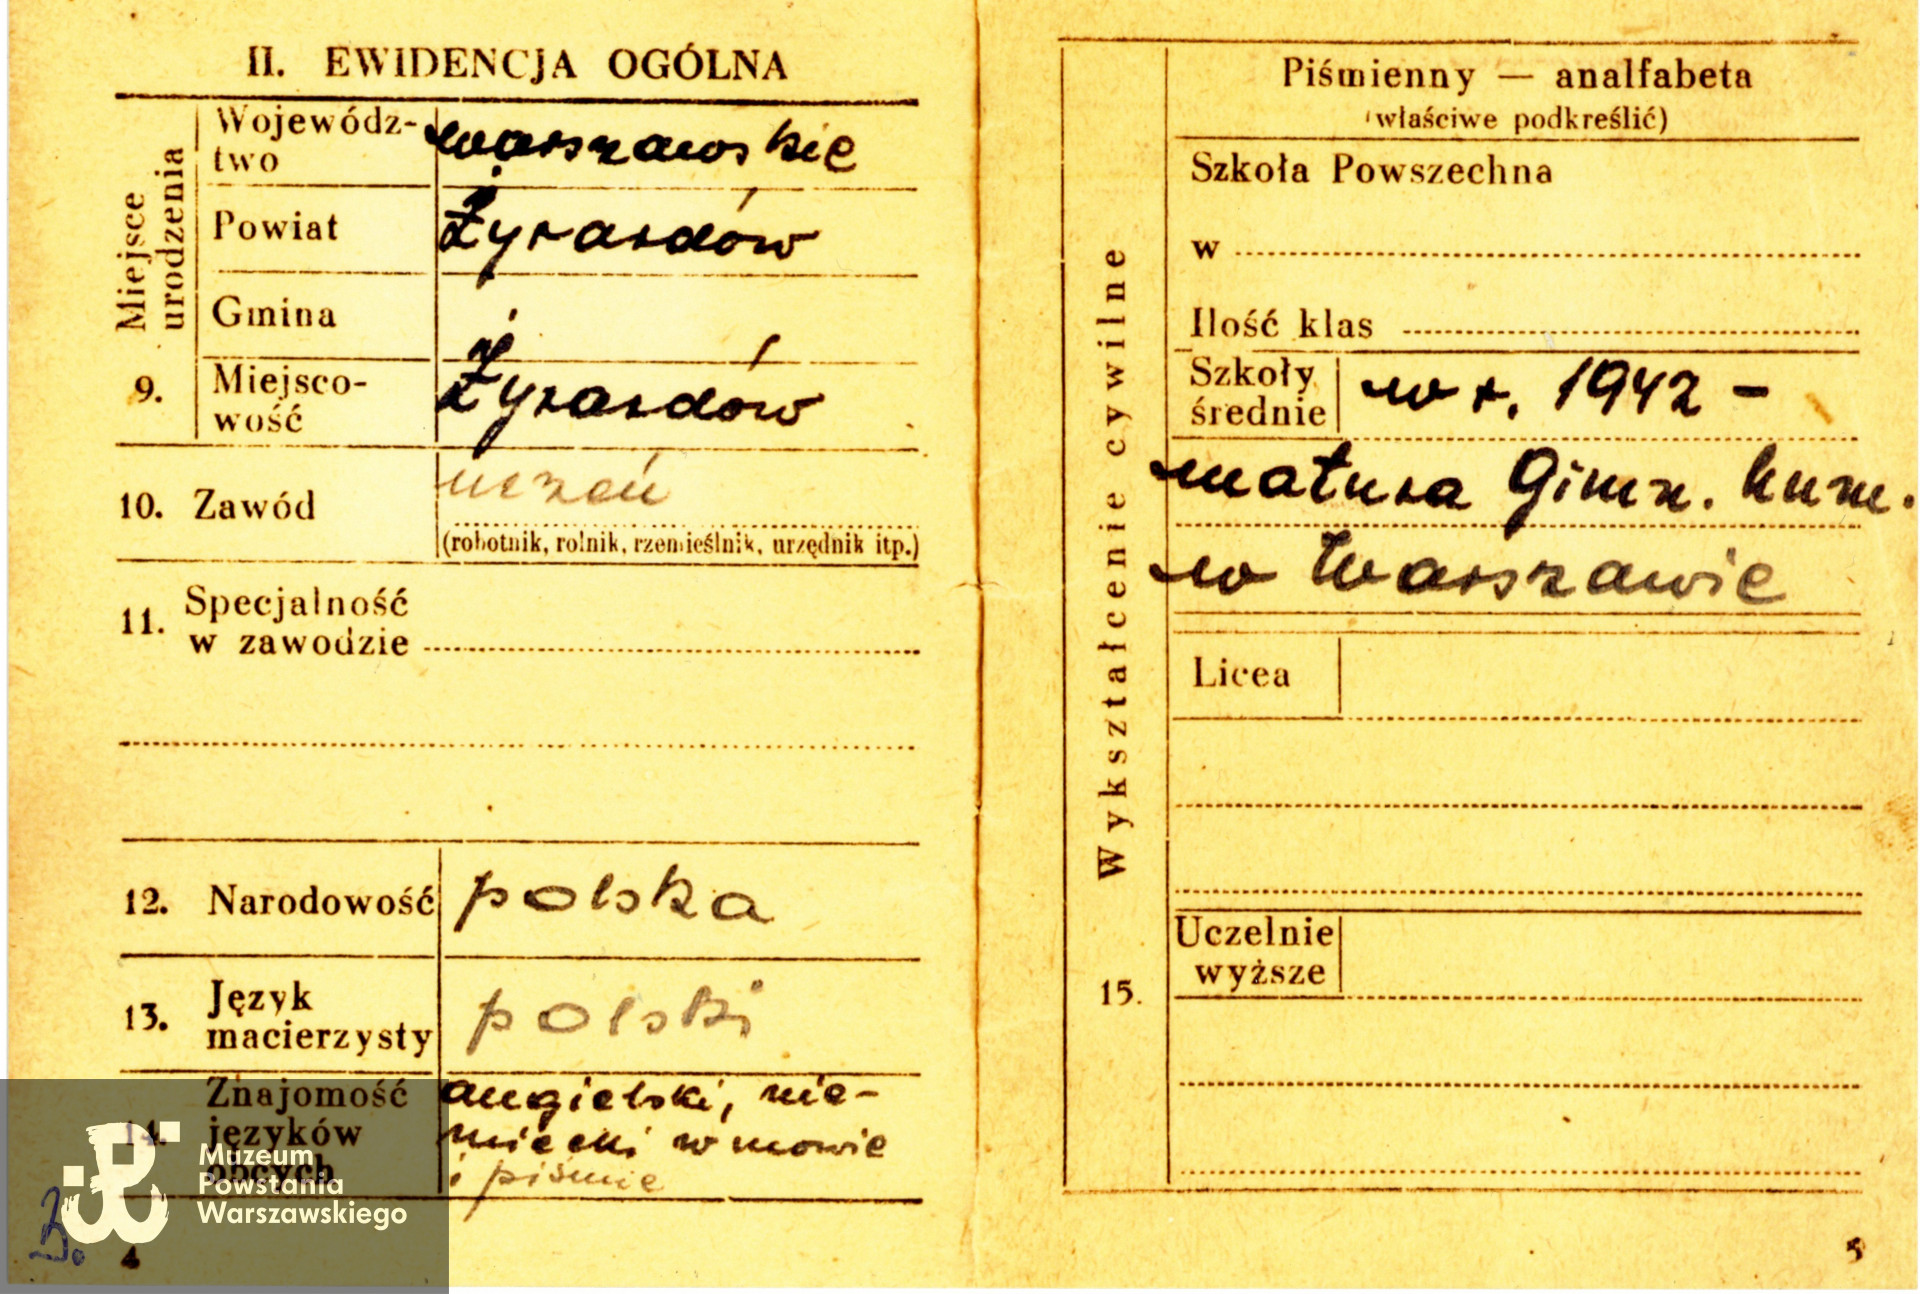 II. EWIDENCJA OGÓLNA
Miejsce
urodzenia
9.
Wojewódz-
two
warszawskie
Powiat
Żyrardów
Gmina
Miejsco-
wość
Żyrardów
10. Zawód
uczeń
(robotnik, rolnik, rzemieślnik, urzędnik itp.)
11. Specjalność
w zawodzie
12. Narodowość
polska
13. Język
macierzysty
polski
14. Znajomość
języków
obcych
angielski, nie-
miecki w mowie
i piśmie
Muzeum
Powstania
Warszawskiego
3.
4
Wykształcenie cywilne
15.
Piśmienny — analfabeta
(właściwe podkreślić)
Szkoła Powszechna
w
Ilość klas
Szkoły
średnie
w r. 1942 –
matura Gimn. hum.
w Warszawie
Licea
Uczelnie
wyższe
5